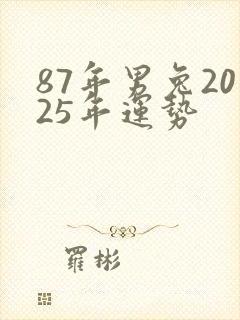 87年男兔20
25年運势
羅彬